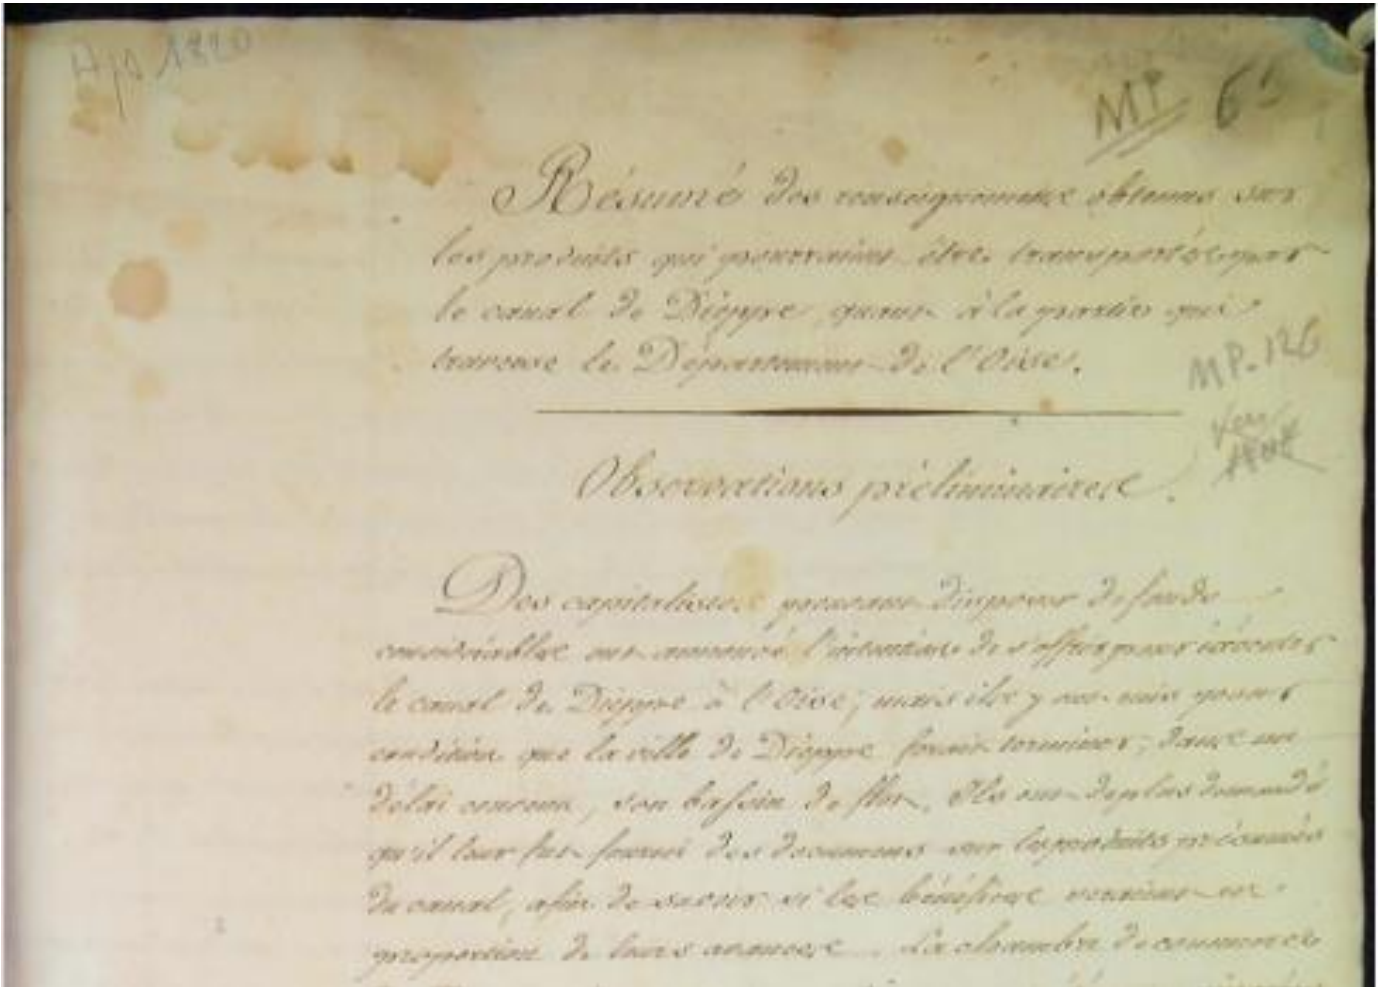 Ap 1820
MP 65
Résumé des renseignements obtenus sur
les produits qui pourraient être transportés par
le canal de Dieppe, quant à la partie qui
traverse le Département de l'Oise.
MP. 126
Observations préliminaires.
Des capitalistes pouvant disposer de fonds
considérables ont annoncé l'intention de s'offrir pour exécuter
le canal de Dieppe à l'Oise; mais ils y ont mis pour
condition que la ville de Dieppe ferait terminer, dans un
délai convenu, son bassin de flot. Ils ont de plus demandé
qu'il leur fut fourni des documens sur les produits présumés
du canal, afin de savoir si les bénéfices seraient en
proportion de leurs avances. La chambre de commerce